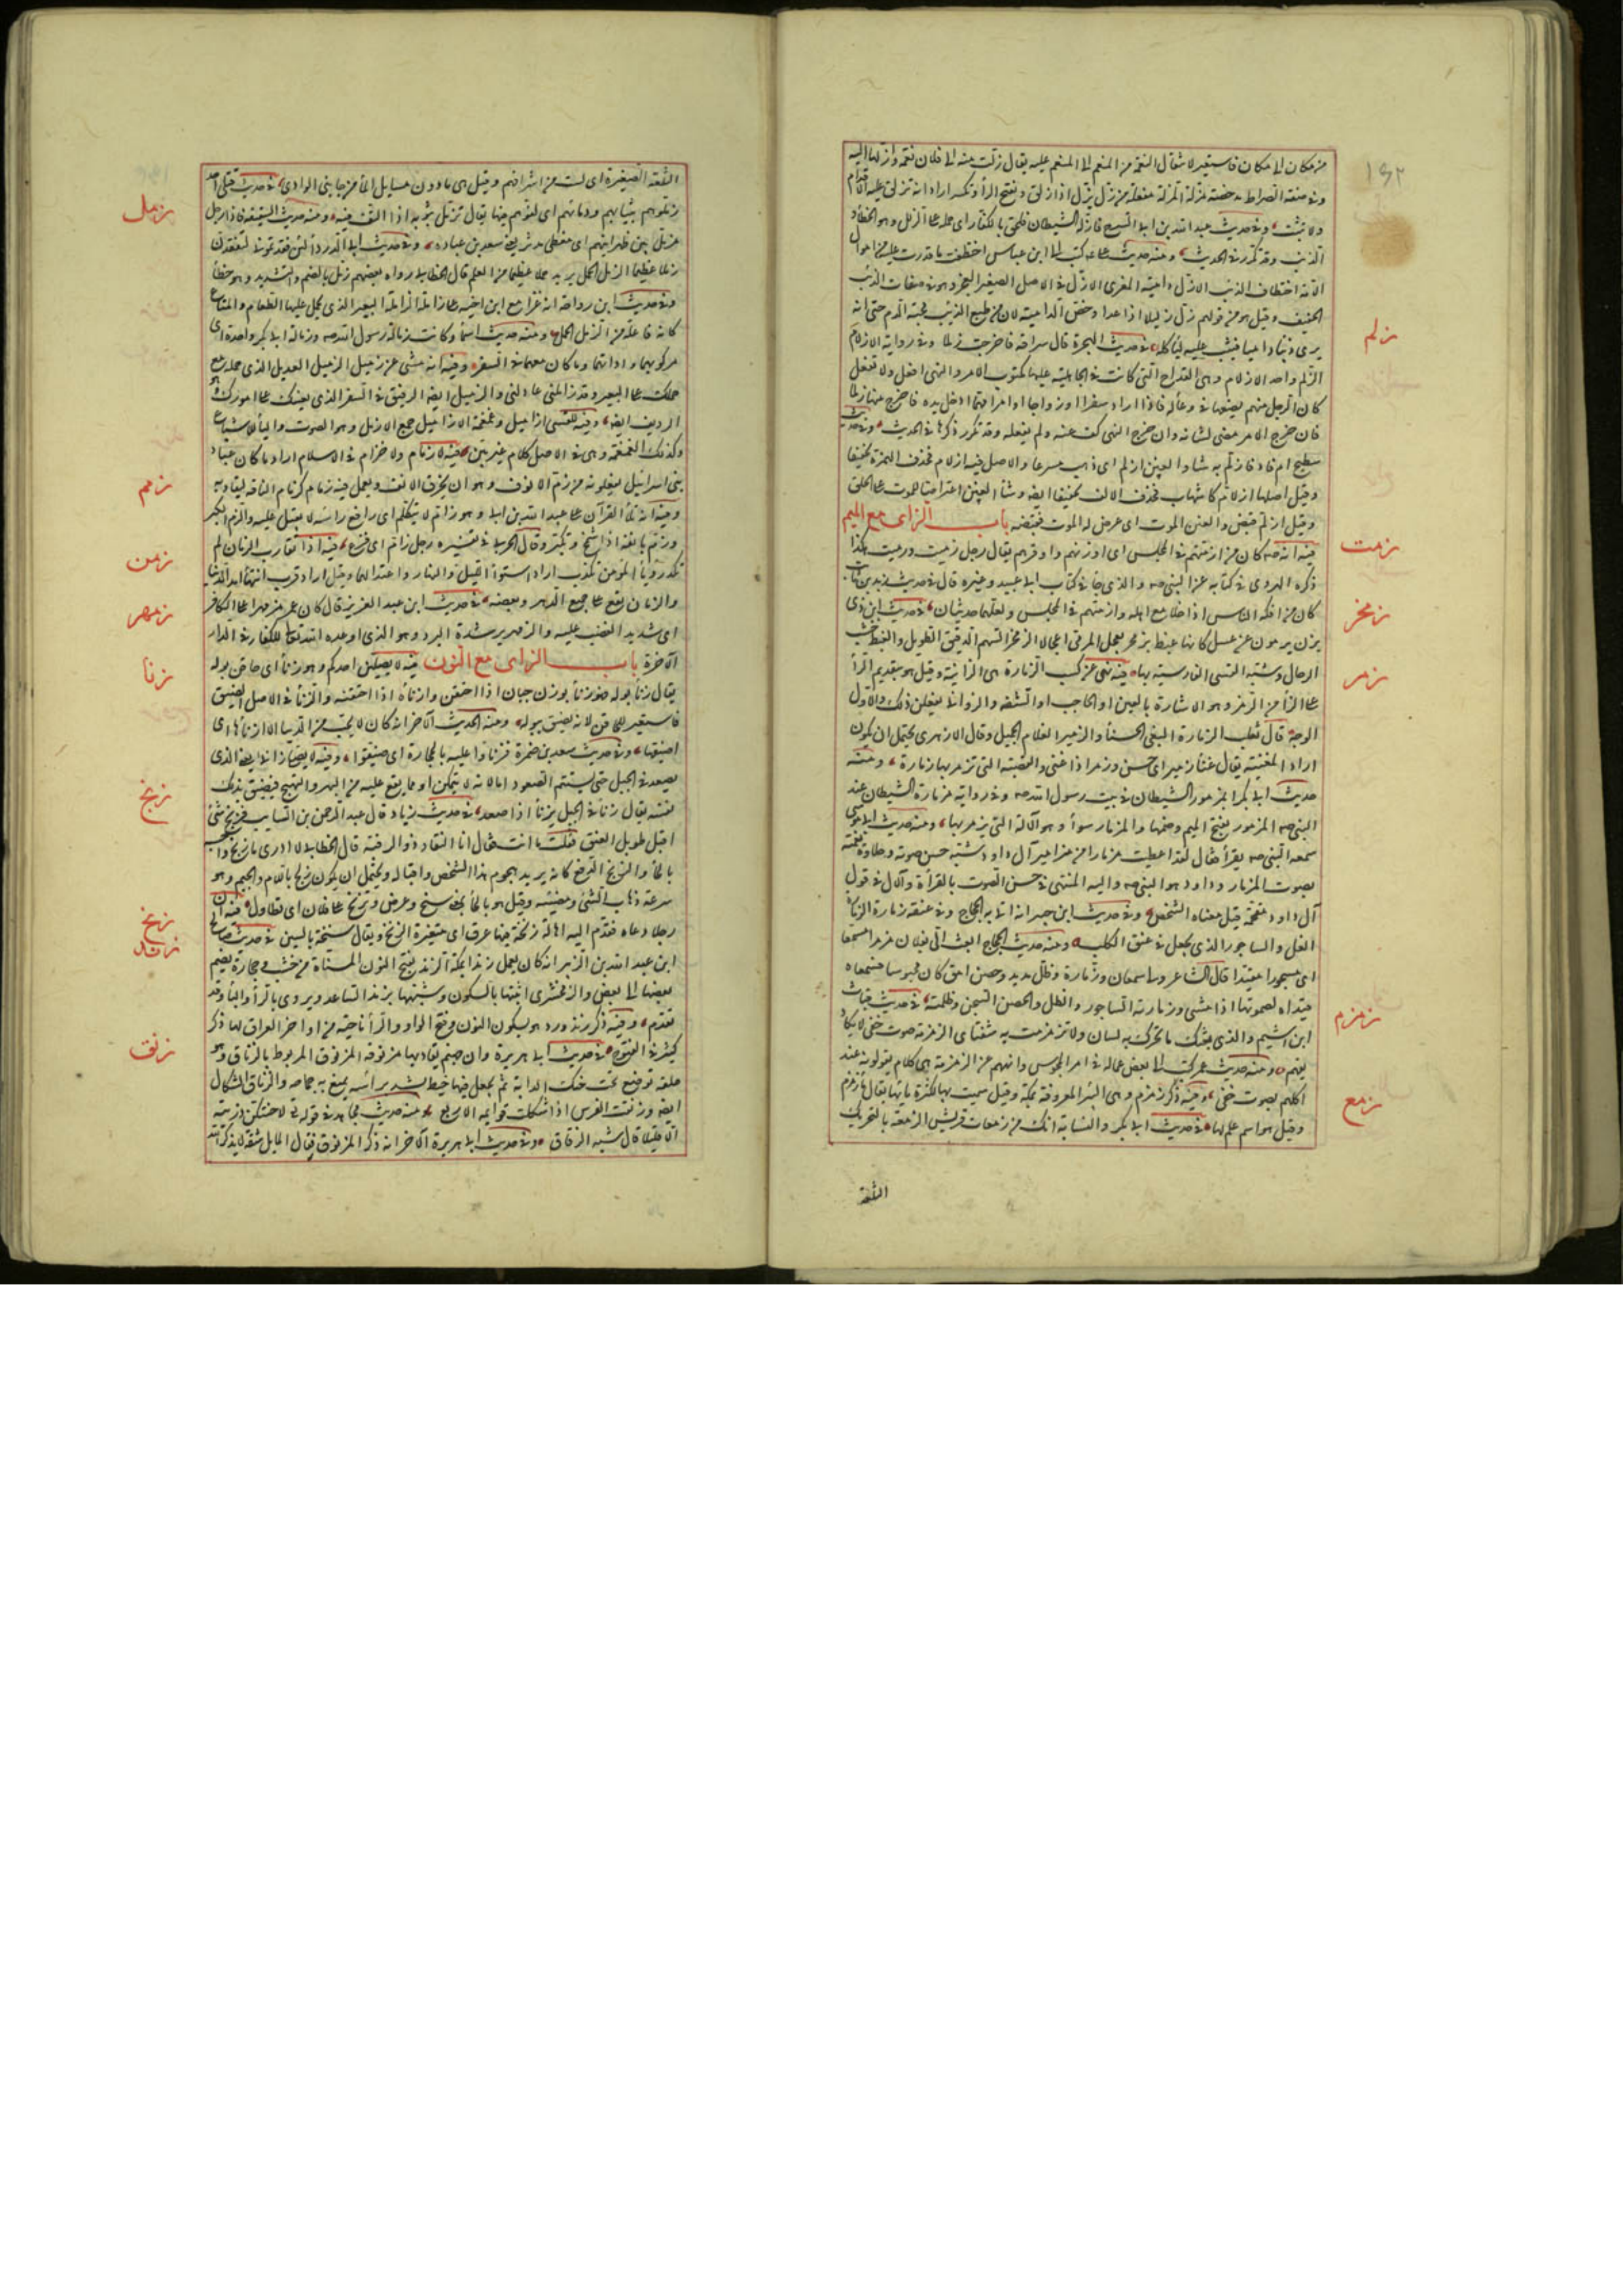 من مكان الى مكان فاستعير لانتقال النعمة من المنعم الى المنعم عليه يقال زلت منه الى فلان نعمة وازلها اليه
وفي صفة الصراط مدحضة مزلة المزلة مفعلة من زل يزل اذا زلق وتفتح الزاء وتكسر اراد انه تزلق عليه الاقدام
ولا تثبت وفي حديث عبد الله بن ابي السرح فازله الشيطان فلحق بالكفار اي حمله على الزلل وهو الخطأ و
الذنب وقد تكرر في الحديث ومنه حديث علي كتب الى ابن عباس اختطفت ما قدرت عليه من اموال
الامة اختطاف الذئب الازل دامية المعزى الازل في الاصل الصغير العجز وهو في صفات الذئب
الخفيف وقيل هو من قولهم زل زليلا اذا عدا وخص الدامية لان من طبع الذئب محبة الدم حتى انه
يرى ذئبا داميا فيثب عليه لياكله في حديث الهجرة قال سراقة فاخرجت زلما وفي رواية الازلام
الزلم واحد الازلام وهي القداح التي كانت في الجاهلية عليها مكتوب الامر والنهي افعل ولا تفعل
كان الرجل منهم يضعها في وعاء له فاذا اراد سفرا او زواجا او امرا مهما ادخل يده فاخرج منها زلما
فان خرج الامر مضى لشانه وان خرج النهي كف عنه ولم يفعله وقد تكرر ذكرها في الحديث وفي حديث
سطيح ام فاد فازلم به شاو العنن ازلم اي ذهب مسرعا والاصل فيه ازلام فحذف الهمزة تخفيفا
وقيل اصلها ازلام كاشهاب فحذف الالف تخفيفا ايضا وشاو العنن اعتراض الموت على الخلق
وقيل ازلم قبض والعنن الموت اي عرض له الموت فقبضه باب الزاي مع الميم
فيه انه صه كان من ازمتهم في المجلس اي ارزنهم واوقرهم يقال رجل زميت وزميت هكذا
ذكره الهروي في كتابه عن النبي صه والذي جاء في كتاب ابي عبيد وغيره قال في حديث زيد بن ثابت
كان من افكه الناس اذا خلا مع اهله وازمتهم في المجلس ولعلهما حديثان في حديث ابن ذي
يزن يرمون عن عتل كانها غبط بزمخر يعجل المرمي اعجالا الزمخر السهم الدقيق الطويل والغبط خشب
الرحال وشبه القسي الفارسية بها فيه نهى عن كسب الزمارة هي الزانية وقيل هو بتقديم الراء
على الزاء من الرمز وهو الاشارة بالعين او الحاجب او الشفة والزواني يفعلن ذلك والاول
الوجه قال ثعلب الزمارة البغي الحسناء والزمير الغلام الجميل وقال الازهري يحتمل ان يكون
اراد المغنية يقال غناء زمير اي حسن وزمر اذا غنى والقصبة التي تزمر بها زمارة ومنه
حديث ابي بكر ابمزمور الشيطان في بيت رسول الله صه وفي رواية مزمارة الشيطان عند
النبي صه المزمور بفتح الميم وضمها والمزمار سواء وهو الالة التي يزمر بها ومنه حديث ابي موسى
سمعه النبي صه يقرأ فقال لقد اعطيت مزمارا من مزامير آل داود شبه حسن صوته وحلاوة نغمته
بصوت المزمار وداود هو النبي صه واليه المنتهى في حسن الصوت بالقراءة والال في قول
آل داود مقحمة قيل معناه الشخص وفي حديث ابن جبير انه اتى به الحجاج وفي عنقه زمارة الزمارة
الغل والساجور الذي يجعل في عنق الكلب ومنه حديث الحجاج ابعث الي بفلان مزمرا مسمعا
اي مسجورا مقيدا قال الشاعر ولي مسمعان وزمارة وظل مديد وحصن امق كان محبوسا فمسمعاه
قيداه لصوتهما اذا مشى وزمارته الساجور والظل والحصن السجن وظلمته في حديث قباث
ابن اشيم والذي بعثك ما تحرك به لسان ولا تزمزمت به شفتاي الزمزمة صوت خفي لا يكاد
يفهم ومنه حديث عمر كتب الى بعض عماله في امر المجوس وانههم عن الزمزمة هي كلام يقولونه عند
اكلهم بصوت خفي وفيه ذكر زمزم وهي البئر المعروفة بمكة وقيل سميت بها لكثرة مائها يقال ماء زمزم
وقيل هو اسم علم لها في حديث ابي بكر والنسابة انك من زمعات قريش الزمعة بالتحريك
التلعة
١٩٢
زلم
زمت
زمخر
زمر
زمزم
زمع
التلعة الصغيرة اي لست من اشرافهم وقيل هي ما دون مسايل الماء من جانبي الوادي في حديث قتلى احد
زملوهم بثيابهم ودمائهم اي لفوهم فيها يقال تزمل بثوبه اذا التف فيه ومنه حديث السقيفة فاذا رجل
مزمل بين ظهرانيهم اي مغطى مدثر يعني سعد بن عبادة وفي حديث ابي الدرداء لئن فقدتموني لتفقدن
زملا عظيما الزمل الحمل يريد حملا عظيما من العلم قال الخطابي رواه بعضهم زمل بالضم والتشديد وهو خطأ
وفي حديث ابن رواحة انه غزا مع ابن اخيه على زاملة الزاملة البعير الذي يحمل عليها الطعام والمتاع
كانه فاعلة من الزمل الحمل ومنه حديث اسماء وكانت زمالة رسول الله صه وزمالة ابي بكر واحدة اي
مركوبهما واداتهما وما كان معهما في السفر وفيه انه مشى عن زميل الزميل العديل الذي حمله مع
حملك على البعير وقد زاملني عادلني والزميل ايضا الرفيق في السفر الذي يعينك على امورك وهو
الرديف ايضا وفيه للقسي ازاميل وغمغمة الازاميل جمع الازمل وهو الصوت والياء للاشباع
وكذلك الغمغمة وهي في الاصل كلام غير بين فيه لا زمام ولا خزام في الاسلام اراد ما كان عباد
بني اسرائيل يفعلونه من زم الانوف وهو ان يخرق الانف ويعمل فيه زمام كزمام الناقة ليقاد به
وفيه انه تلا القرآن على عبد الله بن ابي وهو زام لا يتكلم اي رافع راسه لا يقبل عليه والزم الكبر
وزم بانفه اذا شمخ وتكبر وقال الحربي في تفسيره رجل زام اي فزع فيه اذا تقارب الزمان لم
تكد رؤيا المؤمن تكذب اراد استواء الليل والنهار واعتدالهما وقيل اراد قرب انتهاء امد الدنيا
والزمان يقع على جميع الدهر وبعضه في حديث ابن عبد العزيز قال كان عمر مزمهرا على الكافر
اي شديد الغضب عليه والزمهرير شدة البرد وهو الذي اوعده الله تعالى للكفار في الدار
الآخرة باب الزاي مع النون فيه لا يصلين احدكم وهو زناء اي حاقن بوله
يقال زنأ بوله فهو زناء بوزن جبان اذا احتقن وازنأه اذا احتقنه والزنأ في الاصل الضيق
فاستعير للحاقن لانه يضيق ببوله ومنه الحديث الآخر انه كان لا يحب من الدنيا الا ازنأها اي
اضيقها وفي حديث سعد بن ضمرة فزنأوا عليه بالحجارة اي ضيقوا وفيه لا يصلي زانئ يعني الذي
يصعد في الجبل حتى يستتم الصعود اما لانه لا يتمكن او مما يقع عليه من البهر والنهيج فيضيق لذلك
نفسه يقال زنأ في الجبل يزنأ اذا صعد في حديث زياد قال عبد الرحمن بن السايب فزنج شئ
اقبل طويل العنق فقلت ما انت فقال انا النقاد ذو الرقبة قال الخطابي لا ادري ما زنج واحسبه
بالحاء والزنح الدفع كانه يريد هجوم هذا الشخص واقباله ويحتمل ان يكون زلج باللام والجيم وهو
سرعة ذهاب الشئ ومضيه وقيل هو بالحاء بمعنى سنح وعرض وتزنح على فلان اي تطاول فيه ان
رجلا دعاه فقدم اليه اهالة زنخة فيها عرق اي متغيرة الرائحة ويقال سنخة بالسين في حديث صالح
ابن عبد الله بن الزبير انه كان يعمل زندا بمكة الزند بفتح النون المسناة من خشب وحجارة يضم
بعضها الى بعض والزمخشري اثبتها بالسكون وشبهها بزند الساعد ويروى بالراء والباء وقد
تقدم وفيه ذكر زندورد هو بسكون النون وفتح الواو والراء ناحية من اواخر العراق لها ذكر
كثير في الفتوح في حديث ابي هريرة وان جهنم يقاد بها مزنوقة المزنوق المربوط بالزناق وهو
حلقة توضع تحت حنك الدابة ثم يجعل فيها خيط يشد براسه يمنع به جماحه والزناق الشكال
ايضا وزنقت الفرس اذا شكلت قوائمه الاربع ومنه حديث مجاهد في قوله تعالى لاحتنكن ذريته
الا قليلا قال شبه الزناق وفي حديث ابي هريرة الآخر انه ذكر المزنوق فقال المايل شقه لا يذكر الله
زمل
زمم
زمن
زمهر
زنأ
زنج
زنخ
زند
زنق